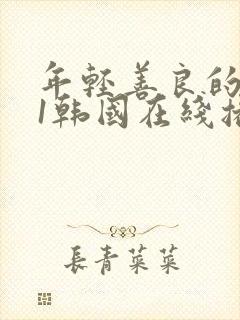 年轻善良的
1韩国在线播
長青菜菜